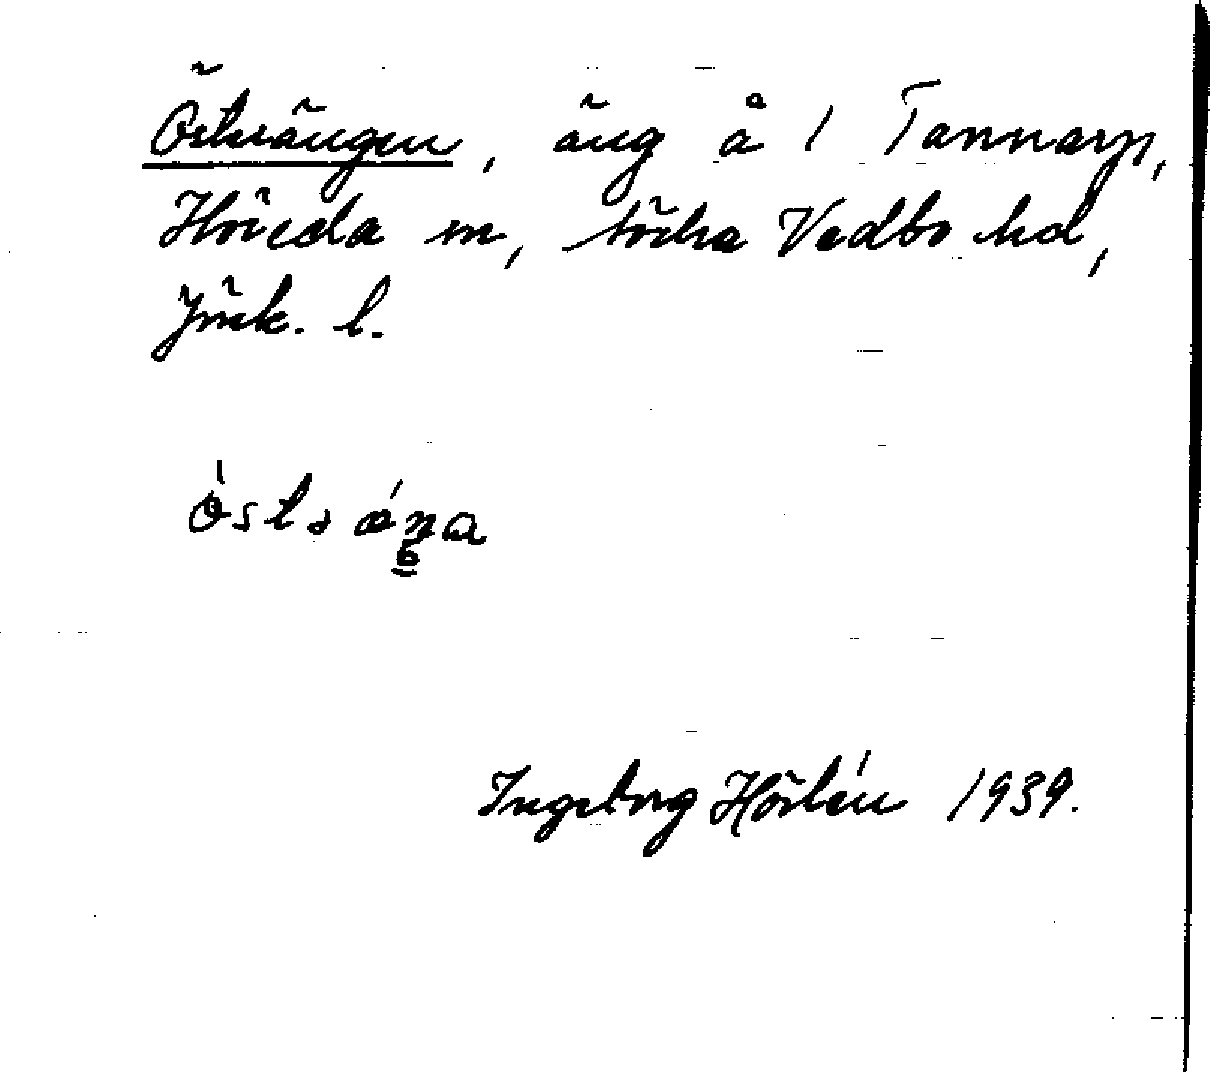 Österängen, äng å 1 Tannarp,
Höreda sn, Södra Vedbo hd,
Jönk. l.
Ingeborg Hörlén 1939.